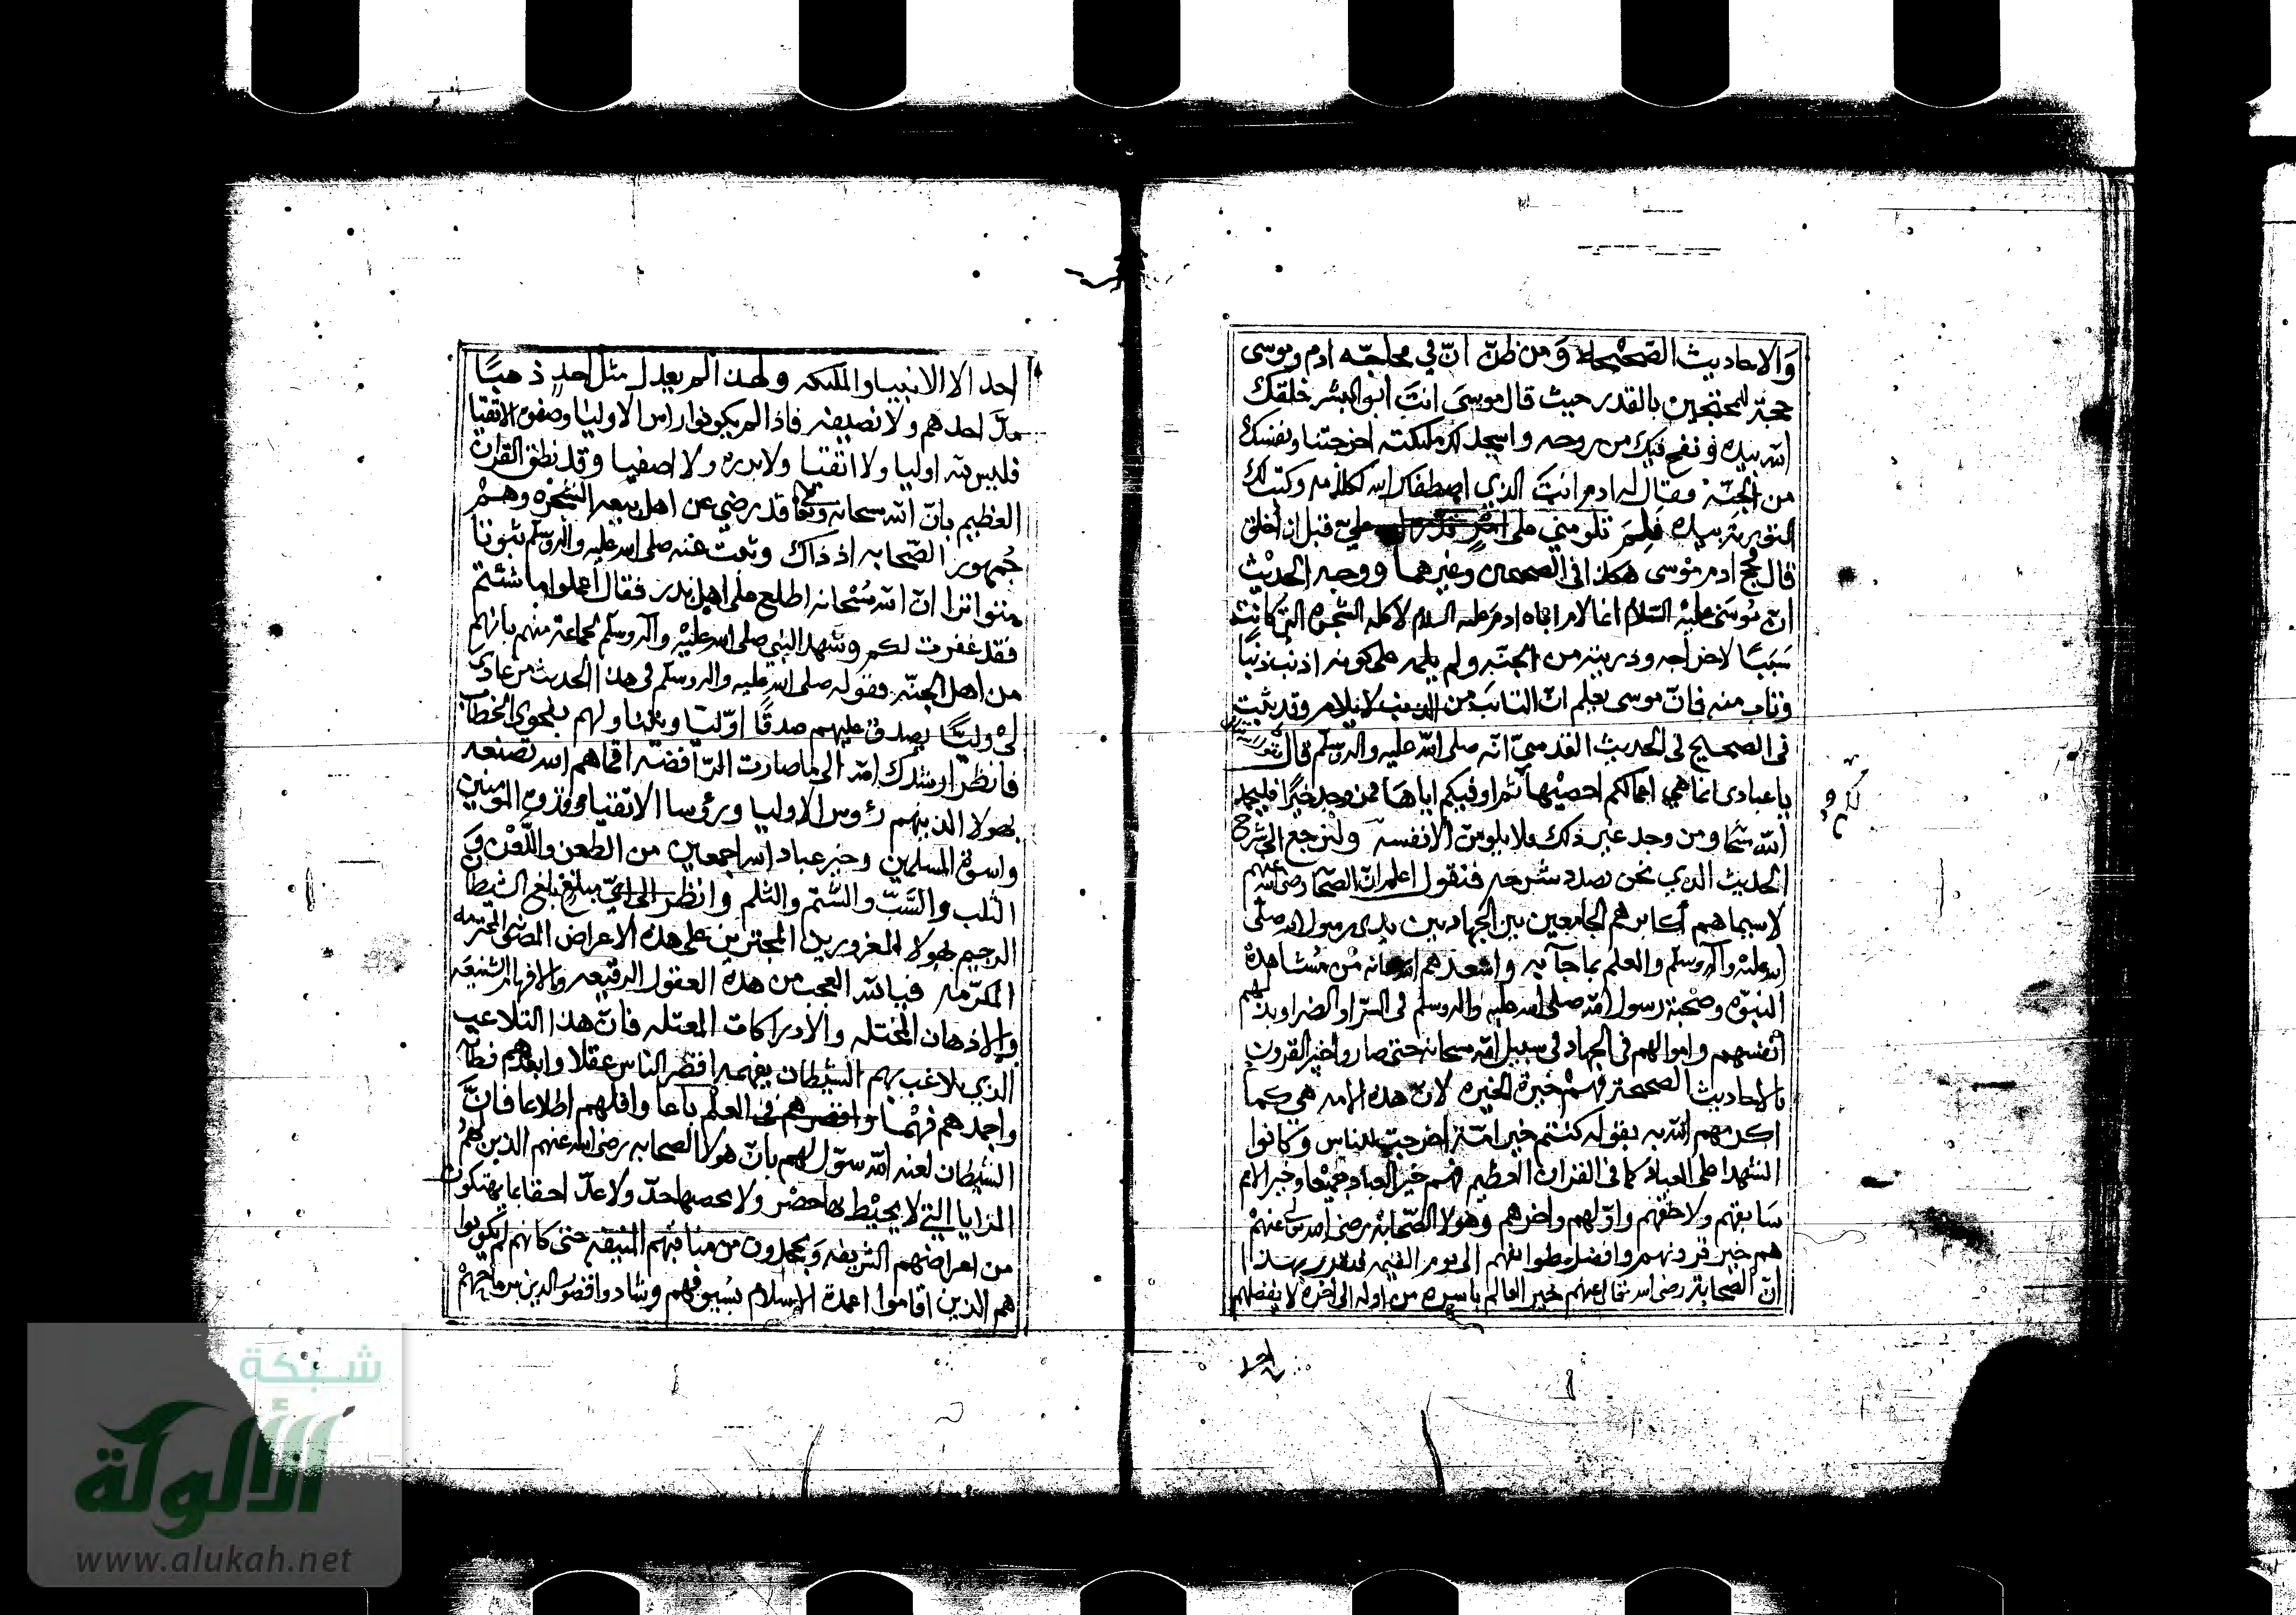 والاحاديث الصحيحه ومن ظن ان في محاجه ادم وموسى
حجة للمحتجين بالقدر حيث قال موسى انت ابو البشر خلقك
الله بيده ونفخ فيك من روحه واسجد لك ملئكته اخرجتنا ونفسك
من الجنة فقال له ادم انت الذي اصطفاك الله بكلامه وكتب لك
التورية بيده فلم تلومني على امر قدره علي قبل ان اخلق
قال فحج ادم موسى هكذا في الصحيحين وغيرهما ووجه الحديث
ان موسى عليه السلام انما لام اباه ادم عليه السلام لاكله الشجرة التي كانت
سببًا لاخراجه وذريته من الجنه ولم يلمه على كونه اذنب ذنبًا
وتاب منه فان موسى يعلم ان التائب من الذنب لا يلام وقد ثبت
في الصحيح في الحديث القدسي انه صلى الله عليه واله وسلم قال
يا عبادي انما هي اعمالكم احصيها ثم اوفيكم اياها فمن وجد خيرًا فليحمد
الله ومن وجد غير ذلك فلا يلومن الا نفسه ولنرجع الى شرح
الحديث الذي نحن بصدد شرحه فنقول اعلم ان الصحابة رضي الله عنهم
لا سيما هم اكابرهم الجامعين بين الجهاد بين يدي رسول الله صلى
الله عليه واله وسلم والعلم بما جاء به واسعدهم الله سبحانه من مشاهدة
النبوه وصحبة رسول الله صلى الله عليه واله وسلم في السرا والضرا وبذلهم
انفسهم واموالهم في الجهاد في سبيل الله سبحانه حتى صاروا خير القرون
بالاحاديث الصحيحة فهم خيرة الخيره لان هذه الامه هي كما
اكرمهم الله به بقوله كنتم خير امة اخرجت للناس وكانوا
الشهدا على العباد كما في القران العظيم فهم خير العباد جميعًا وخير الامم
سابقهم ولاحقهم واولهم واخرهم وهولا الصحابة رضي الله عنهم
هم خير قرونهم وافضل طوائفهم الى يوم القيمه فتقرر بهذا
ان الصحابة رضي الله تعالى عنهم خير العالم باسره من اوله الى اخره لا يفضلهم
احد
احد الا الانبيا والملئكه ولهذا لم يعدل مثل احد ذهبًا
مد احدهم ولا نصيفه فاذا لم يكونوا راس الاوليا وصفوة الاتقيا
فليس لله اوليا ولا اتقيا ولا برره ولا اصفيا وقد نطق القران
العظيم بان الله سبحانه وتعالى قد رضي عن اهل بيعه الشجره وهم
جمهور الصحابه اذ ذاك وثبت عنه صلى الله عليه واله وسلم ثبوتًا
متواترا ان الله سبحانه اطلع على اهل بدر فقال اعملوا ما شئتم
فقد غفرت لكم وشهد النبي صلى الله عليه واله وسلم لجماعة منهم بانهم
من اهل الجنه فقوله صلى الله عليه واله وسلم في هذا الحديث من عادى
لي وليًا يصدق عليهم صدقًا اوليًا ويتناولهم بفحوى الخطاب
فانظر ارشدك الله الى ما صارت الرافضة اقماهم الله تصنعه
بهولا الذين هم رؤس الاوليا ورؤسا الاتقيا وقدوة المومنين
واسوة المسلمين وخير عباد الله اجمعين من الطعن واللعن و
الثلب والسب والشتم والثلم وانظر الى اي مبلغ بلغ الشيطان
الرجيم بهولا المغرورين المجترين على هذه الاعراض المصونه المحترمه
المكرمه فيا لله العجب من هذه العقول الرقيعه والافهام الشنيعه
والاذهان المختله والادراكات المعتله فان هذا التلاعب
الذي تلاعب بهم الشيطان يفهمه اقصر الناس عقلا وابعدهم فطنه
واجمدهم فهمًا واقصرهم في العلم باعا واقلهم اطلاعا فان
الشيطان لعنه الله سول لهم بان هولا الصحابه رضي الله عنهم الذين لهم
المزايا التي لا يحيط بها حصر ولا يحصيها حد ولا عد احقا بما يهتكون
من اعراضهم الشريفه ويجحدون من مناقبهم المنيفه حتى كانهم لم يكونوا
هم الذين اقاموا اعمدة الاسلام بسيوفهم وشادوا قصور الدين برماحهم
شبكة
الألوكة
www.alukah.net